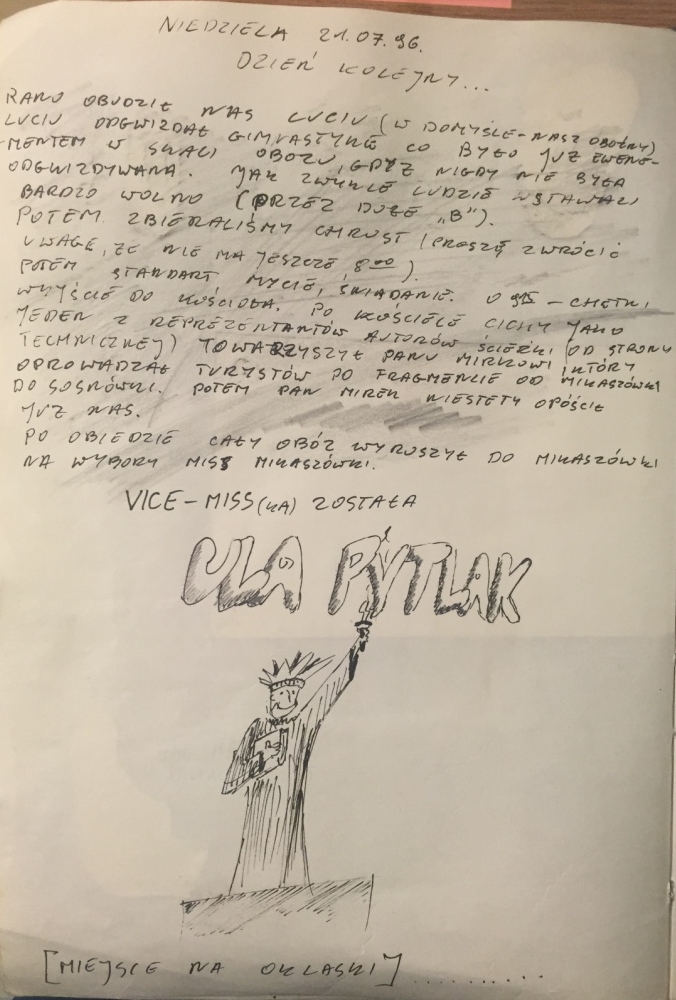 NIEDZIELA 21.07.96.
DZIEŃ KOLEJNY...
RANO OBUDZIŁ NAS LUCIU (W DOMYŚLE - NASZ OBOŹNY)
LUCIU ODGWIZDAŁ GIMNASTYKĘ CO BYŁO JUŻ EWENE-
-MENTEM W SKALI OBOZU, GDYŻ NIGDY NIE BYŁA
ODGWIZDYWANA. JAK ZWYKLE LUDZIE WSTAWALI
BARDZO WOLNO (PRZEZ DUŻE „B”).
POTEM ZBIERALIŚMY CHRUST (PROSZĘ ZWRÓCIĆ
UWAGĘ, ŻE NIE MA JESZCZE 8⁰⁰).
POTEM STANDART MYCIE, ŚNIADANIE. O 9¹⁵ - CHĘTNI
WYJŚCIE DO KOŚCIOŁA. PO KOŚCIELE CICHY JAKO
JEDEN Z REPREZENTANTÓW AUTORÓW ŚCIEŻKI (OD STRONY
TECHNICZNEJ) TOWARZYSZYŁ PANU MIRKOWI, KTÓRY
OPROWADZAŁ TURYSTÓW PO FRAGMENCIE OD MIKASZÓWKI
DO SOSNÓWKI. POTEM PAN MIREK NIESTETY OPÓŚCIŁ
JUŻ NAS.
PO OBIEDZIE CAŁY OBÓZ WYRUSZYŁ DO MIKASZÓWKI
NA WYBORY MISS MIKASZÓWKI.
VICE-MISS(KA) ZOSTAŁA
ULA PYTLAK
[MIEJSCE NA OKLASKI].........